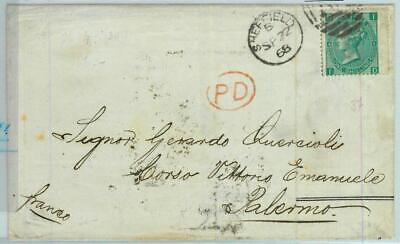 SHEFFIELD
SP 22
68
PD
Signor Gerardo Quercioli
Corso Vittorio Emanuele
Palermo.
franco